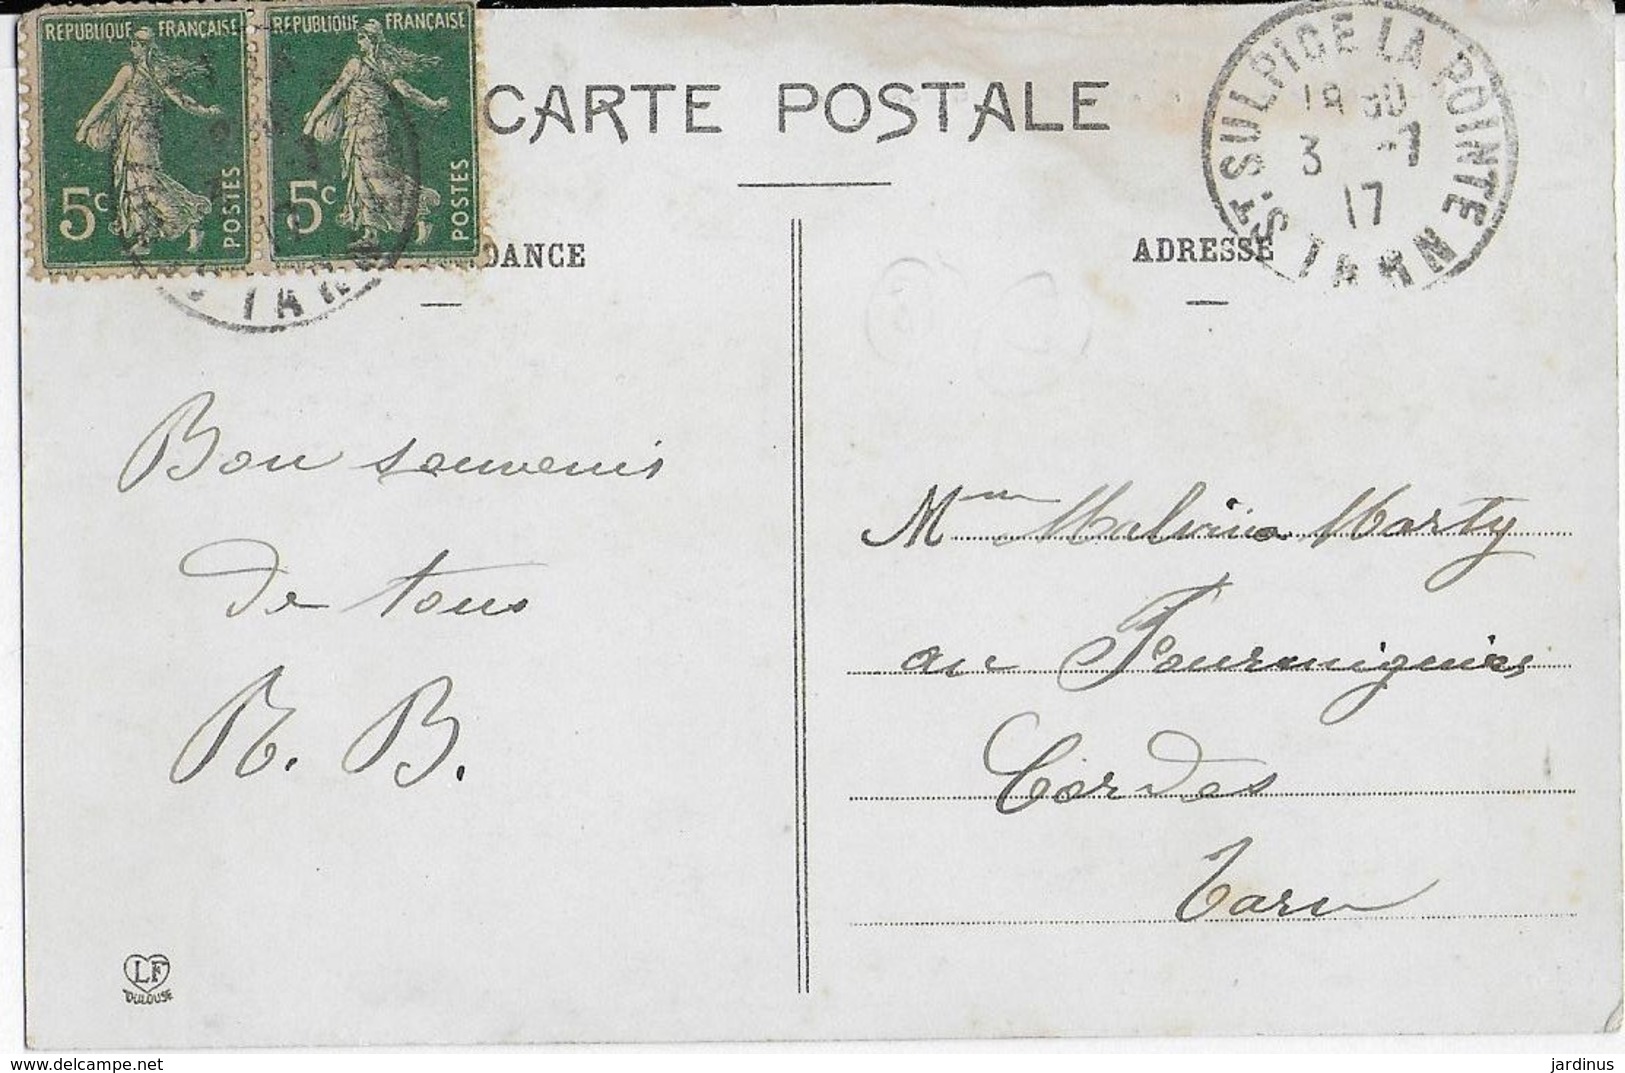 REPUBLIQUE FRANÇAISE
5c
POSTES
REPUBLIQUE FRANÇAISE
5c
POSTES
TARN
CARTE POSTALE
ST. SULPICE LA POINTE
3 -7
17
TARN
DANCE
ADRESSE
Bon souvenir
de tous
B.
Mme Malvina Marty
au Fourmiguier
Cordes
Tarn
LF
TOULOUSE
jardinus